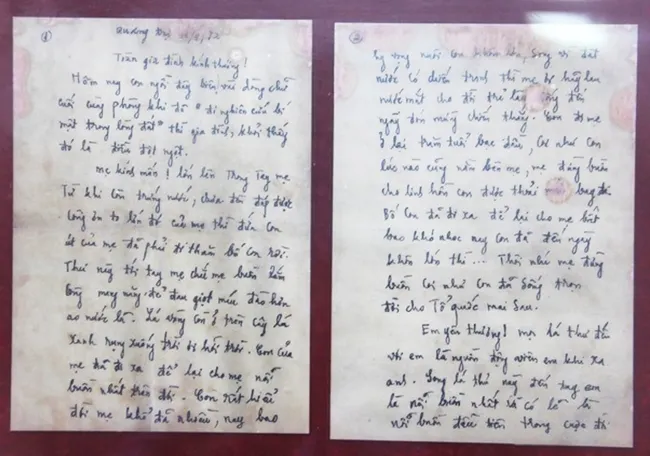 ①
Quảng Trị 11/9/72
Toàn gia đình kính thương!
Hôm nay con ngồi đây biên vài dòng chữ
cuối cùng phòng khi đã "đi nghiên cứu bí
mật trong lòng đất" thì gia đình khỏi thấy
đó là điều đột ngột.
Mẹ kính mến! lớn lên trong tay mẹ
Từ khi còn trứng nước, chưa đền đáp được
công ơn to lớn đó của mẹ thì đứa con
út của mẹ đã phải đi thăm bố con rồi.
Thư này tới tay mẹ chắc mẹ buồn lắm
lòng mẹ này để đau giọt máu đào hơn
ao nước lã. Lá vàng còn ở trên cây lá
xanh rụng xuống trời ơi hỡi trời. Con của
mẹ đã đi xa để lại cho mẹ nỗi
buồn nhất trên đời. Con rất hiểu
đời mẹ khổ đã nhiều, nay bao
②
hy vọng nuôi con khôn lớn, Song vì đất
nước có chiến tranh thì mẹ ơi hãy lau
nước mắt cho đời trẻ lại sống đến
ngày đón mừng chiến thắng. Con đi mẹ
ở lại trăm tuổi bạc đầu, coi như con
lúc nào cũng nằm bên mẹ, mẹ đừng buồn
cho linh hồn con được thoải mái bay đi.
Bố con đã đi xa để lại cho mẹ biết
bao khó nhọc nay con đã đến ngày
khôn lớn thì... Thôi nhé mẹ đừng
buồn coi như con đã sống trọn
đời cho Tổ quốc mai sau.
Em yêu thương! mọi lá thư đến
với em là nguồn động viên em khi xa
anh. Song lá thư này đến tay em
là nỗi buồn nhất và có lẽ là
nỗi buồn đầu tiên trong cuộc đời